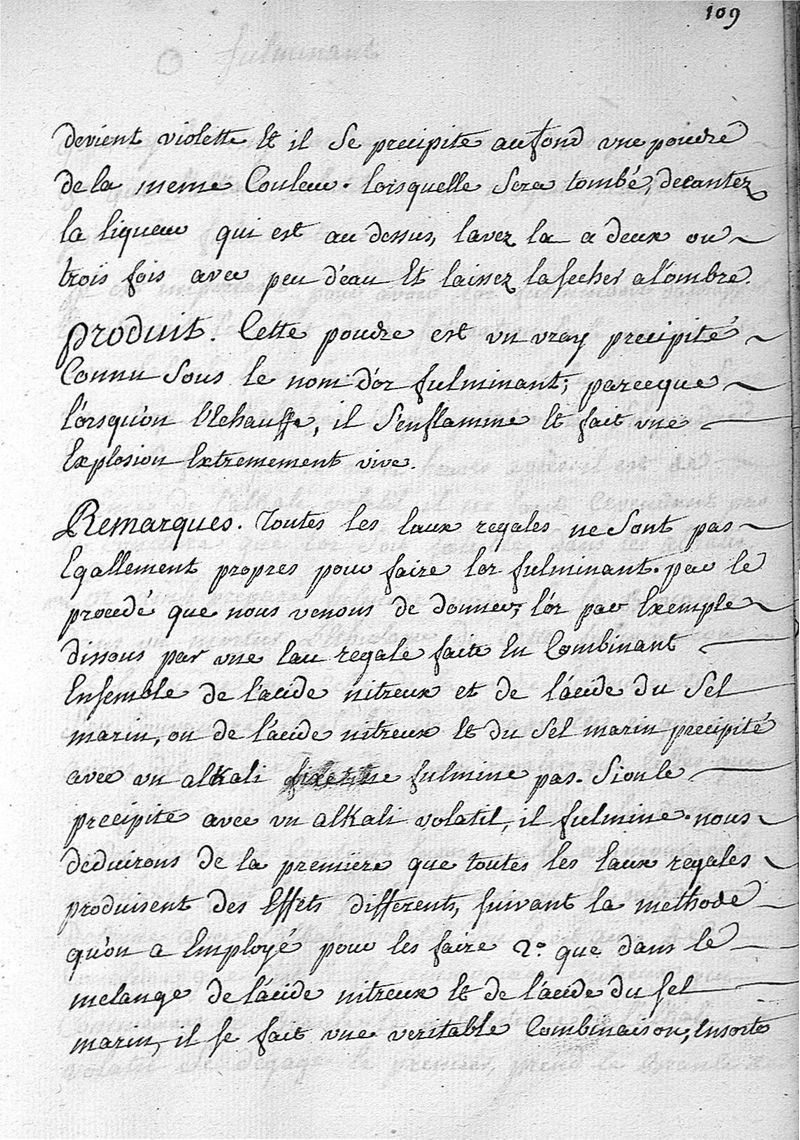 109
devient violette Et il Se precipite au fond vne poudre
de la meme Couleur. lorsquelle Sera tombé, decantez
la liqueur qui est au dessus, lavez la a deux ou
trois fois avec peu d'eau Et laissez la secher a l'ombre.
produit. Cette poudre est vn vray precipité
Connu Sous le nom d'or fulminant; parceque
lorsquon l'Echauffe, il S'enflamine Et fait vne
Explosion Extremement vive.
Remarques. Toutes les Eaux regales ne Sont pas
Egallement propres pour faire l'or fulminant. par le
procedé que nous venons de donner; l'or par Exemple
dissous par vne Eau regale faite En Combinant
Ensemble de l'acide nitreux et de l'acide du Sel
marin, ou de l'acide nitreux Et du Sel marin precipité
avec vn alkali fixe ne fulmine pas. Sion le
precipite avec vn alkali volatil, il fulmine. nous
déduirons de la premiere que toutes les Eaux regales
produisent des Effets differents, suivant la methode
qu'on a Employé pour les faire 2.° que dans le
melange de l'acide nitreux Et de l'acide du sel
marin, il se fait vne veritable Combinaison, Ensorte